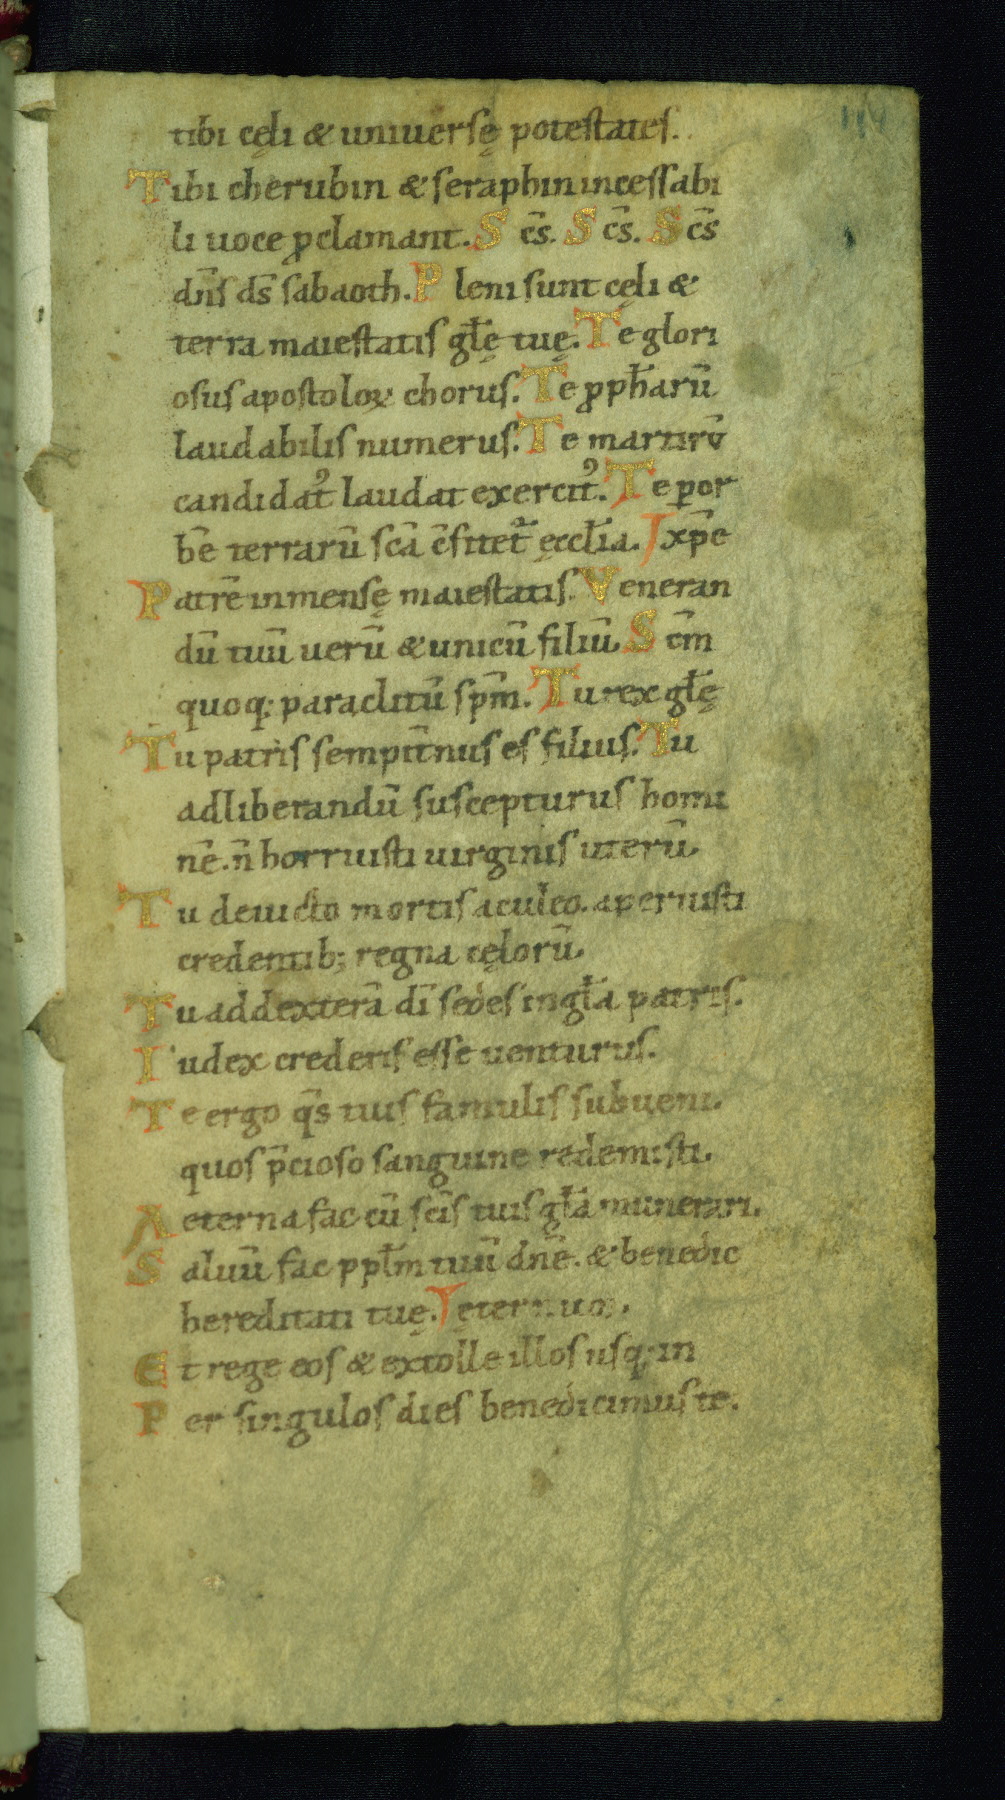 tibi cęli & uniuersę potestates.
Tibi cherubin & seraphin incessabi
li uoce ꝓclamant. S cs̄. S cs̄. S cs̄
dn̄s ds̄ sabaoth. P leni sunt cęli &
terra maiestatis gl̄ę tuę. Te glori
osus apostoloꝝ chorus. Te ꝓph̄arū
laudabilis numerus. Te martirū
candidatꝰ laudat exercitꝰ. Te ꝑ or
bē terrarū scā c̄fitet᷑ ęccl̄ia. xp̄e
Patrē inmensę maiestatis. Veneran
dū tuū uerū & unicū filiū. S cm̄
quoq; paraclitū sp̄m. Tu rex gl̄ę
Tu patris sempit̄nus es filius. Tu
adliberandū suscepturus homi
nē. n̄ horruisti uirginis uterū.
Tu deuicto mortis aculeo. aperuisti
credentib; regna cęlorū.
Tu addexterā dī sedes ingl̄a patris.
Iudex crederis esse uenturus.
Te ergo qs̄ tuis famulis subueni.
quos p̄cioso sanguine redemisti.
Aeterna fac cū scīs tuis gl̄a munerari.
Saluū fac ppl̄m tuū dn̄e. & benedic
hereditati tuę.
Et rege eos & extolle illos usq; in
Per singulos dies benedicimus te.